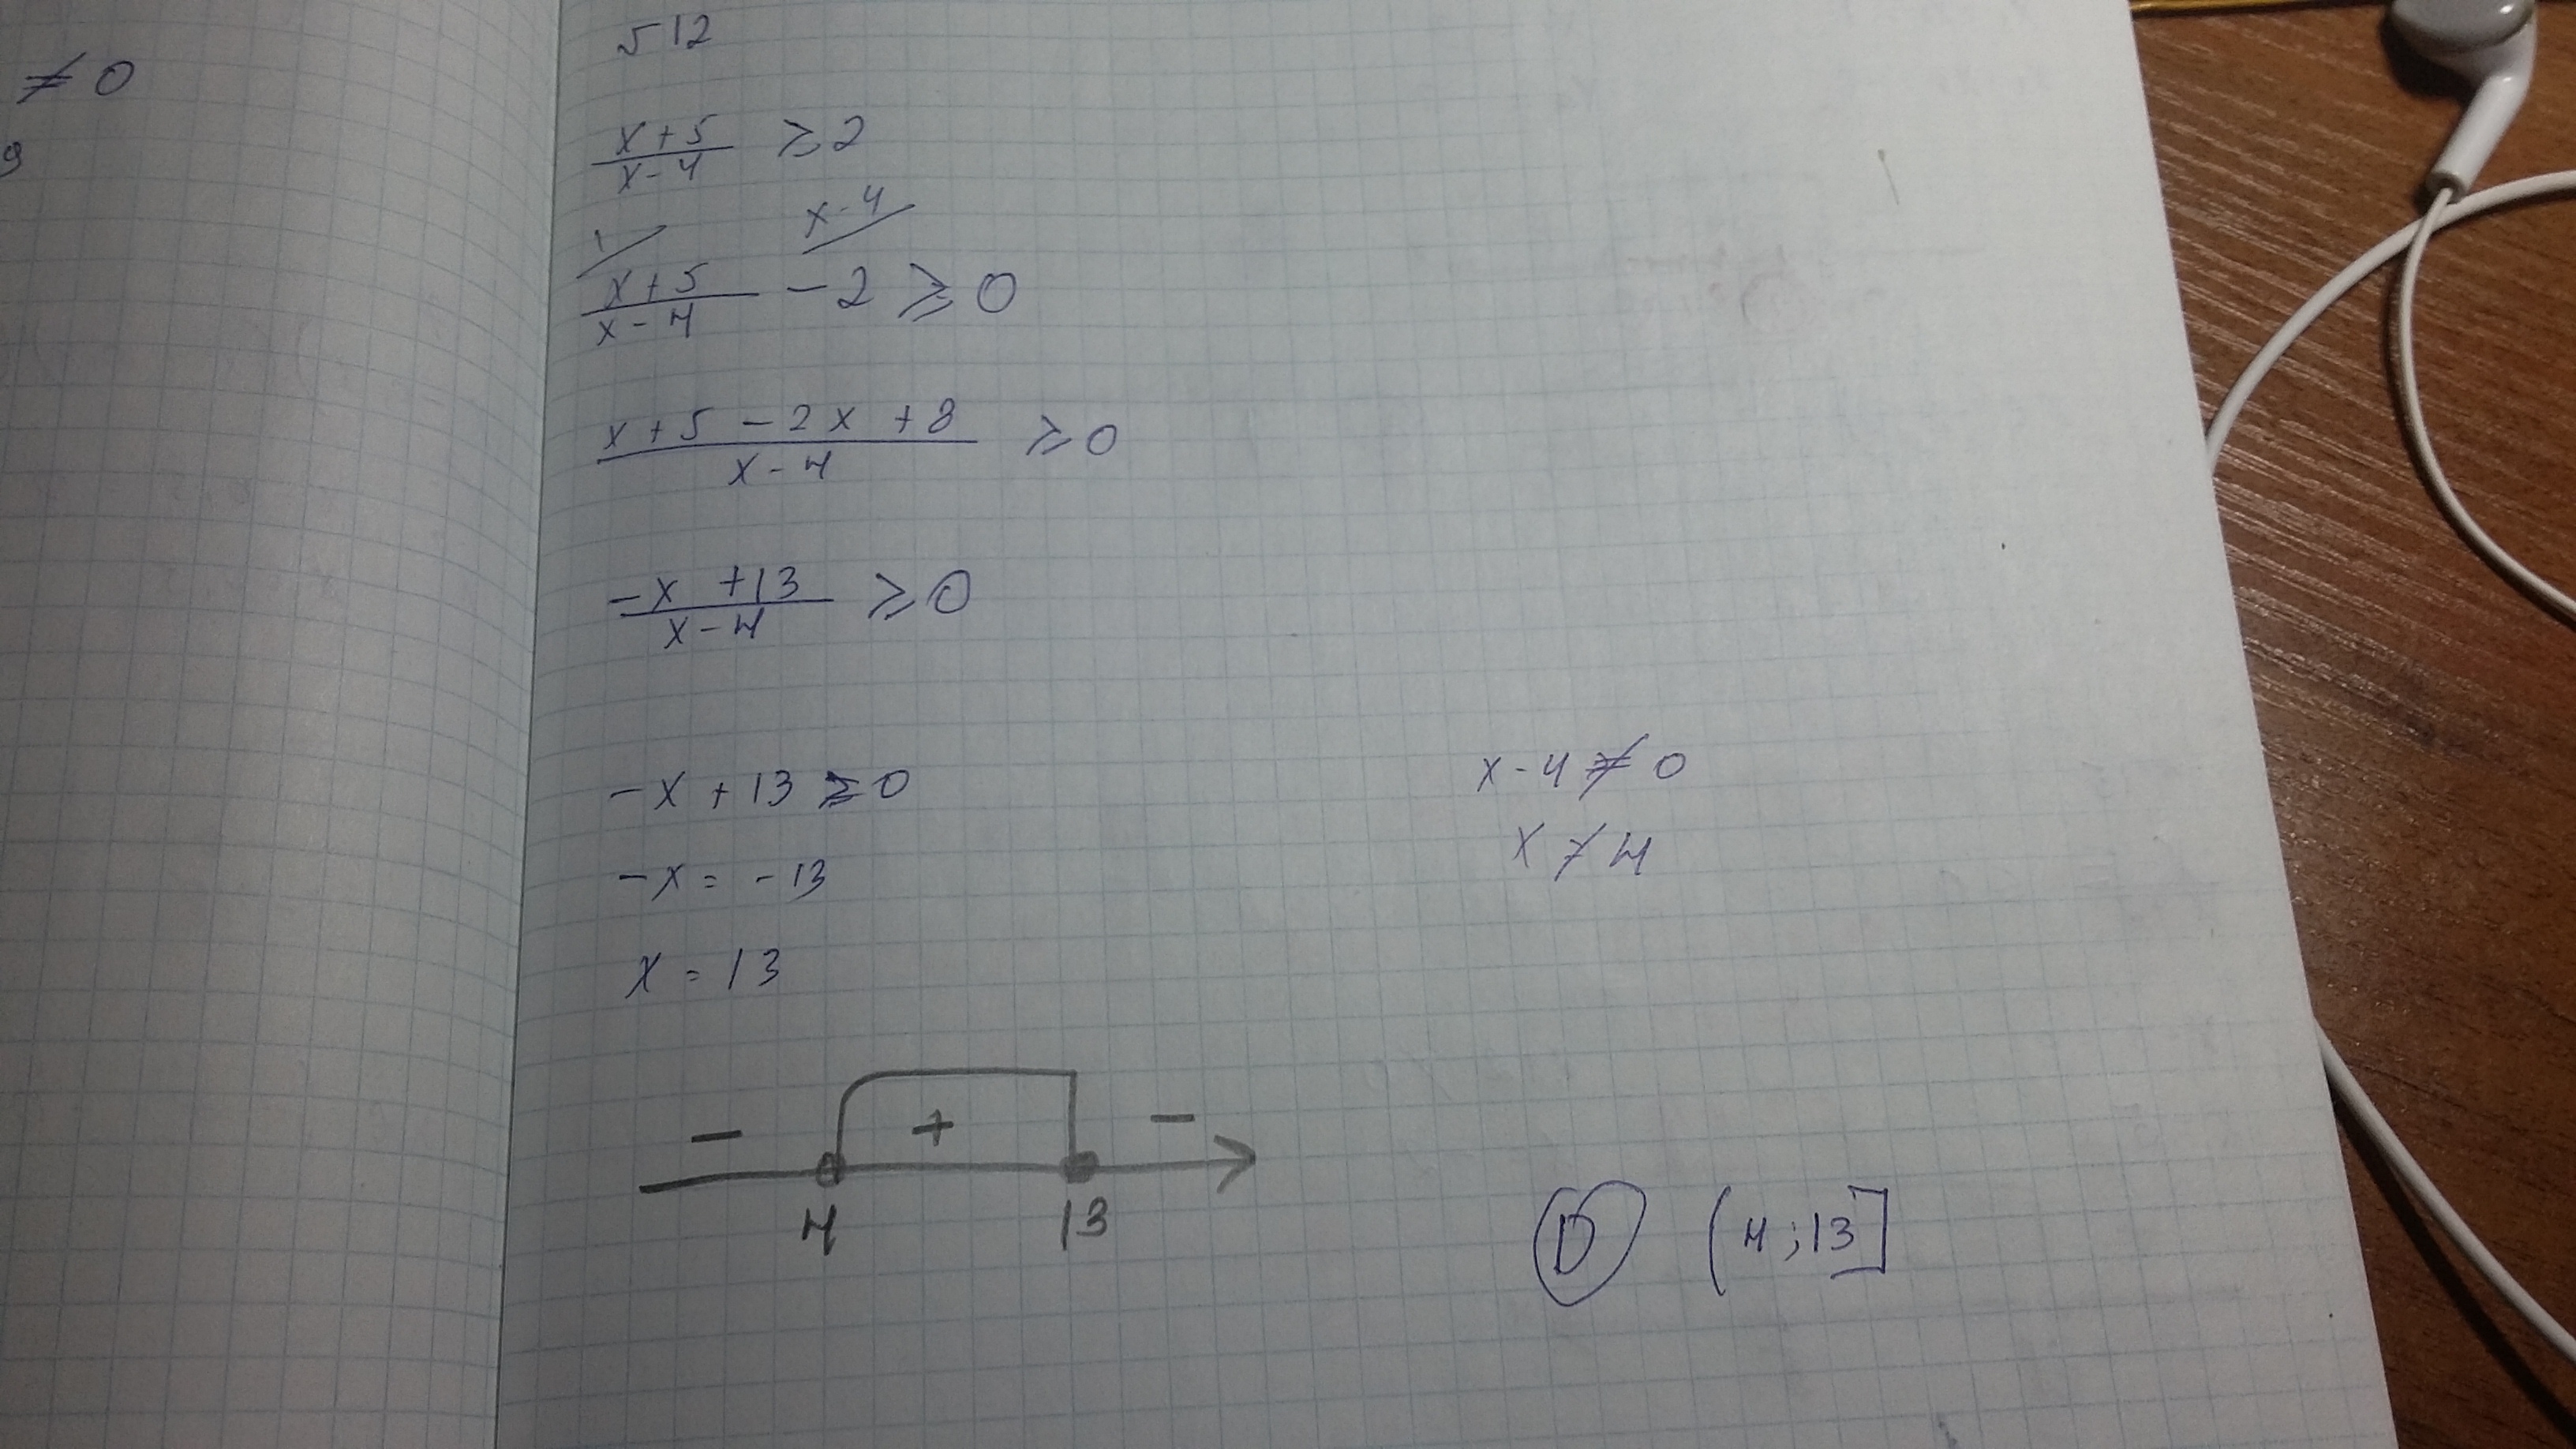 ≠ 0
9
512
x+5/x-4 ≥ 2
1 x-4
x+5/x-4 - 2 ≥ 0
x+5-2x+8/x-4 ≥ 0
-x+13/x-4 ≥ 0
-x+13 ≥ 0 x-4 ≠ 0
-x = -13 x ≠ 4
x = 13
- + -
4 13
D (4;13]